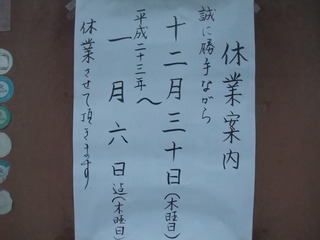 休業案内
誠に勝手ながら
十二月三十日(木曜日)
〜
平成二十三年
一月六日迄(木曜日)
休業させて頂きます